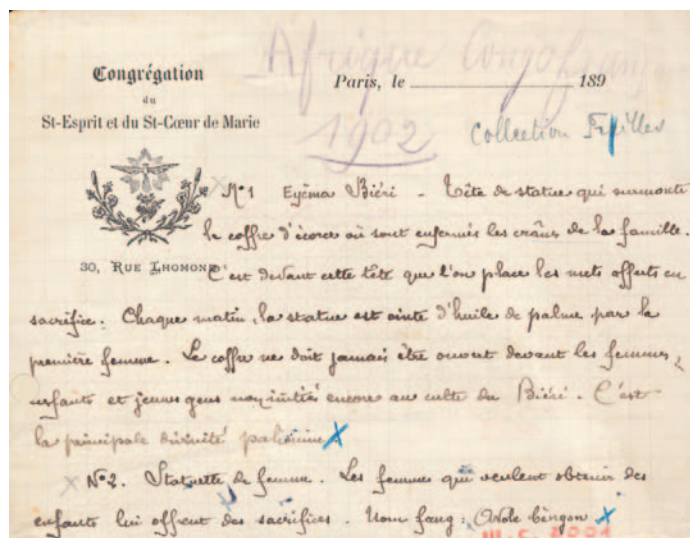 Afrique Congo français
1902
Congrégation
du
St-Esprit et du St-Cœur de Marie
Paris, le 189
Collection
30, RUE LHOMOND
N° 1 Eyéma Biéri - Tête de statue qui surmonte
le coffre d'écorce où sont enfermés les crânes de la famille.
C'est devant cette tête que l'on place les mets offerts en
sacrifice. Chaque matin, la statue est ointe d'huile de palme par la
première femme. Le coffre ne doit jamais être ouvert devant les femmes,
enfants et jeunes gens non initiés encore au culte du Biéri. C'est
la principale divinité pahouine.
N° 2. Statuette de femme. Les femmes qui veulent obtenir des
enfants lui offrent des sacrifices. Nom fang: